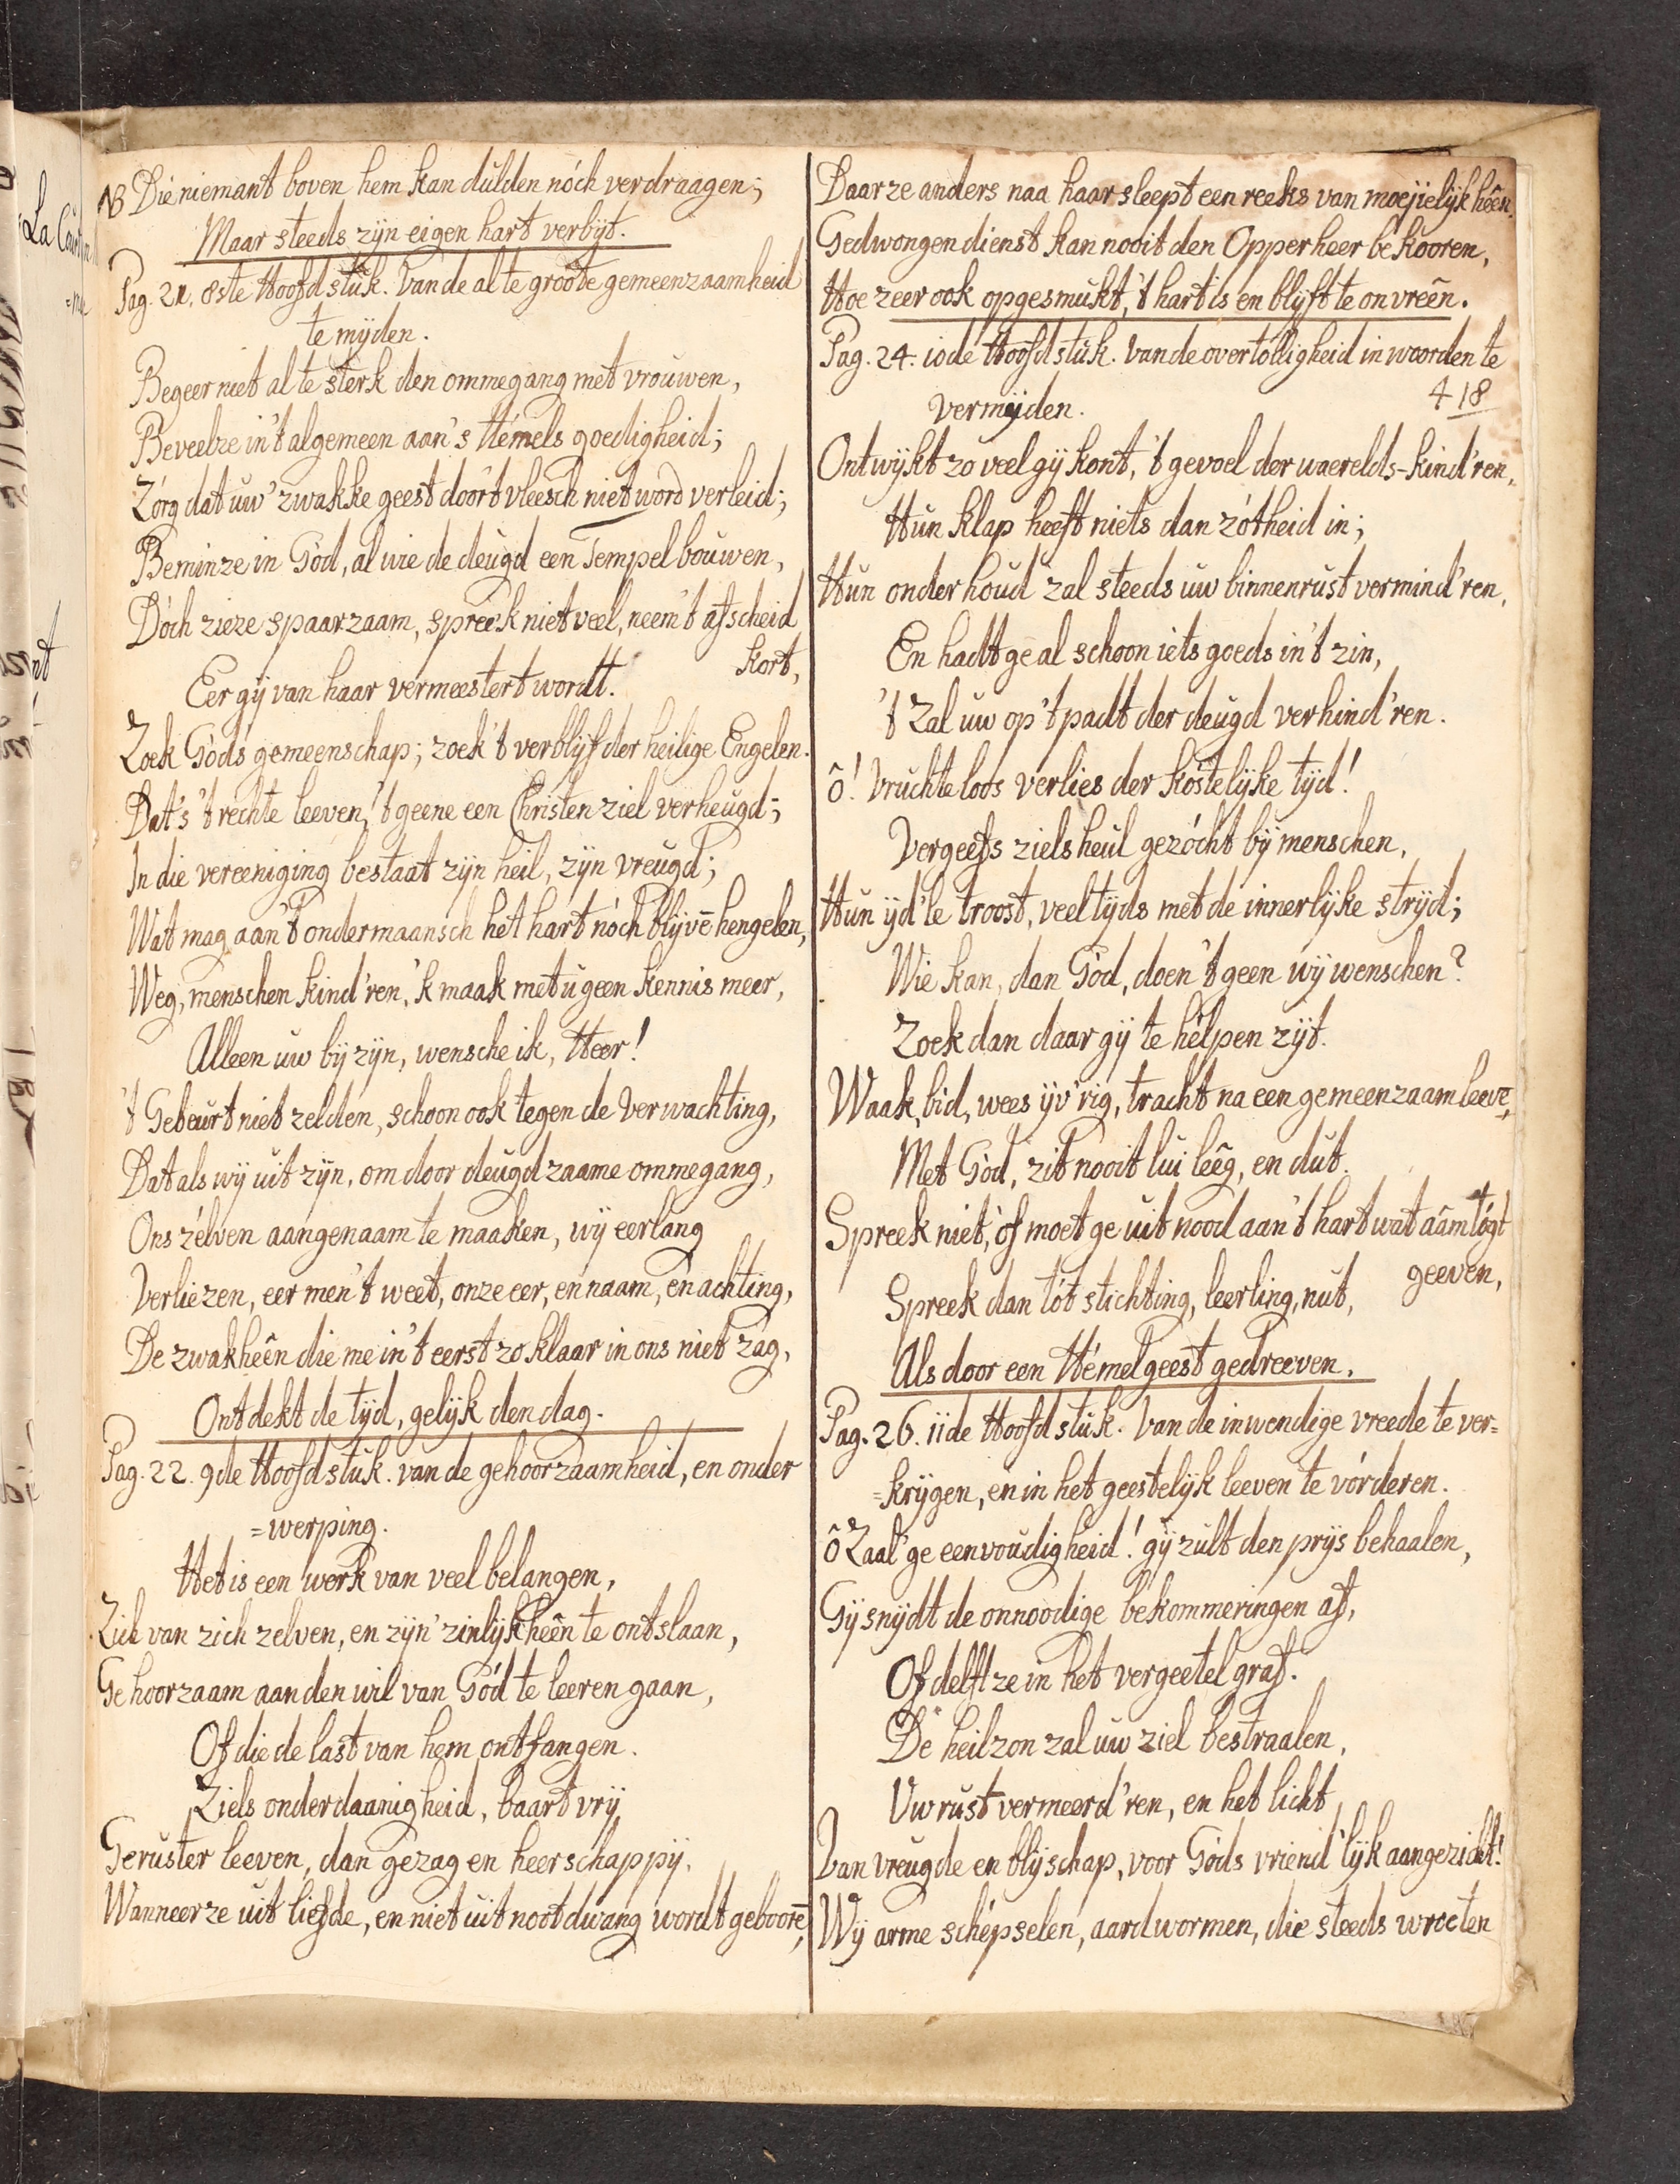 NB Die niemant boven hem kan dulden nóch verdraagen;
Maar steeds zijn eigen hart verbijt.
Pag. 21. 8ste Hoofdstuk. Van de al te groote gemeenzaamheid
te mijden.
Begeer niet al te sterk den ommegang met vrouwen,
Beveelze in 't algemeen aan 's Hémels goedigheid;
Zórg dat uw' zwakke geest door 't vleesch niet word verleid;
Beminze in Gód, al wie de deugd een Tempel bouwen,
Dóch zieze spaarzaam, spreek niet veel, neem 't afscheid
kort,
Eer gij van haar vermeestert wordt.
Zoek Góds gemeenschap; zoek 't verblijf der heilige Engelen.
Dat's 't rechte leeven, 't geene een Christen ziel verheugd;
In die vereeniging bestaat zijn heil, zijn vreugd;
Wat mag aan 't ondermaansch het hart nóch blijvē hengelen,
Weg, menschen kind'ren, 'k maak met u geen kennis meer,
Alleen uw bij zijn, wensche ik, Heer!
't Gebeurt niet zelden, schoon ook tegen de verwachting,
Dat als wij uit zijn, om door deugdzaame ommegang,
Ons zélven aangenaam te maaken, wij eerlang
Verliezen, eer men 't weet, onze eer, en naam, en achting,
De zwakheên die me in 't eerst zo klaar in ons niet zag,
Ontdekt de tijd, gelijk den dag.
Pag. 22. 9de Hoofdstuk. van de gehoorzaamheid, en onder
=werping.
Het is een werk van veel belangen,
Zich van zich zelven, en zijn' zinlijkheên te ontslaan,
Gehoorzaam aan den wil van Gód te leeren gaan,
Of die de last van hem ontfangen.
Ziels onderdaanigheid, baart vrij
Geruster leeven, dan gezag en heerschappij.
Wanneer ze uit liefde, en niet uit nootdwang wordt geboorē,
Daar ze anders naa haar sleept een reeks van moejielijkheên.
Gedwongen dienst kan nooit den Opperheer bekooren,
Hoe zeer ook opgesmukt, 't hart is en blijft te onvreên.
Pag. 24. 10de Hoofdstuk. Van de overtólligheid in woorden te
418
vermijden.
Ontwijkt zo veel gij kont, 't gevoel der waerelds-kind'ren,
Hun klap heeft niets dan zótheid in;
Hun onderhoud zal steeds uw binnenrust vermind'ren,
En hadt ge al schoon iets goeds in 't zin,
't Zal uw op 't padt der deugd verhind'ren.
ô! Vruchteloos verlies der kóstelijke tijd!
Vergeefs zielsheul gezócht bij menschen,
Hun ijd'le troost, veeltijds met de innerlijke strijd;
Wie kan, dan Gód, doen 't geen wij wenschen?
Zoek dan daar gij te hélpen zijt.
Waak, bid, wees ijv'rig, tracht na een gemeenzaam leevē,
Met Gód, zit nooit lui leêg, en dut.
Spreek niet, óf moet ge uit nood aan 't hart wat aâmtógt
geeven,
Spreek dan tót stichting, leerling, nut,
Als door een Hémelgeest gedreeven.
Pag. 26. 11de Hoofdstuk. Van de inwendige vreede te ver=
=krijgen, en in het geestelijk leeven te vórderen.
ô Zaal'ge eenvoudigheid! gij zult den prijs behaalen,
Gij snijdt de onnoodige bekommeringen af,
Of delft ze in het vergeetel graf.
De heilzon zal uw ziel bestraalen,
Uw rust vermeerd'ren, en het licht
Van vreugde en blijschap, voor Góds vriend'lijk aangezicht!
Wij arme schépselen, aardwormen, die steeds wroeten